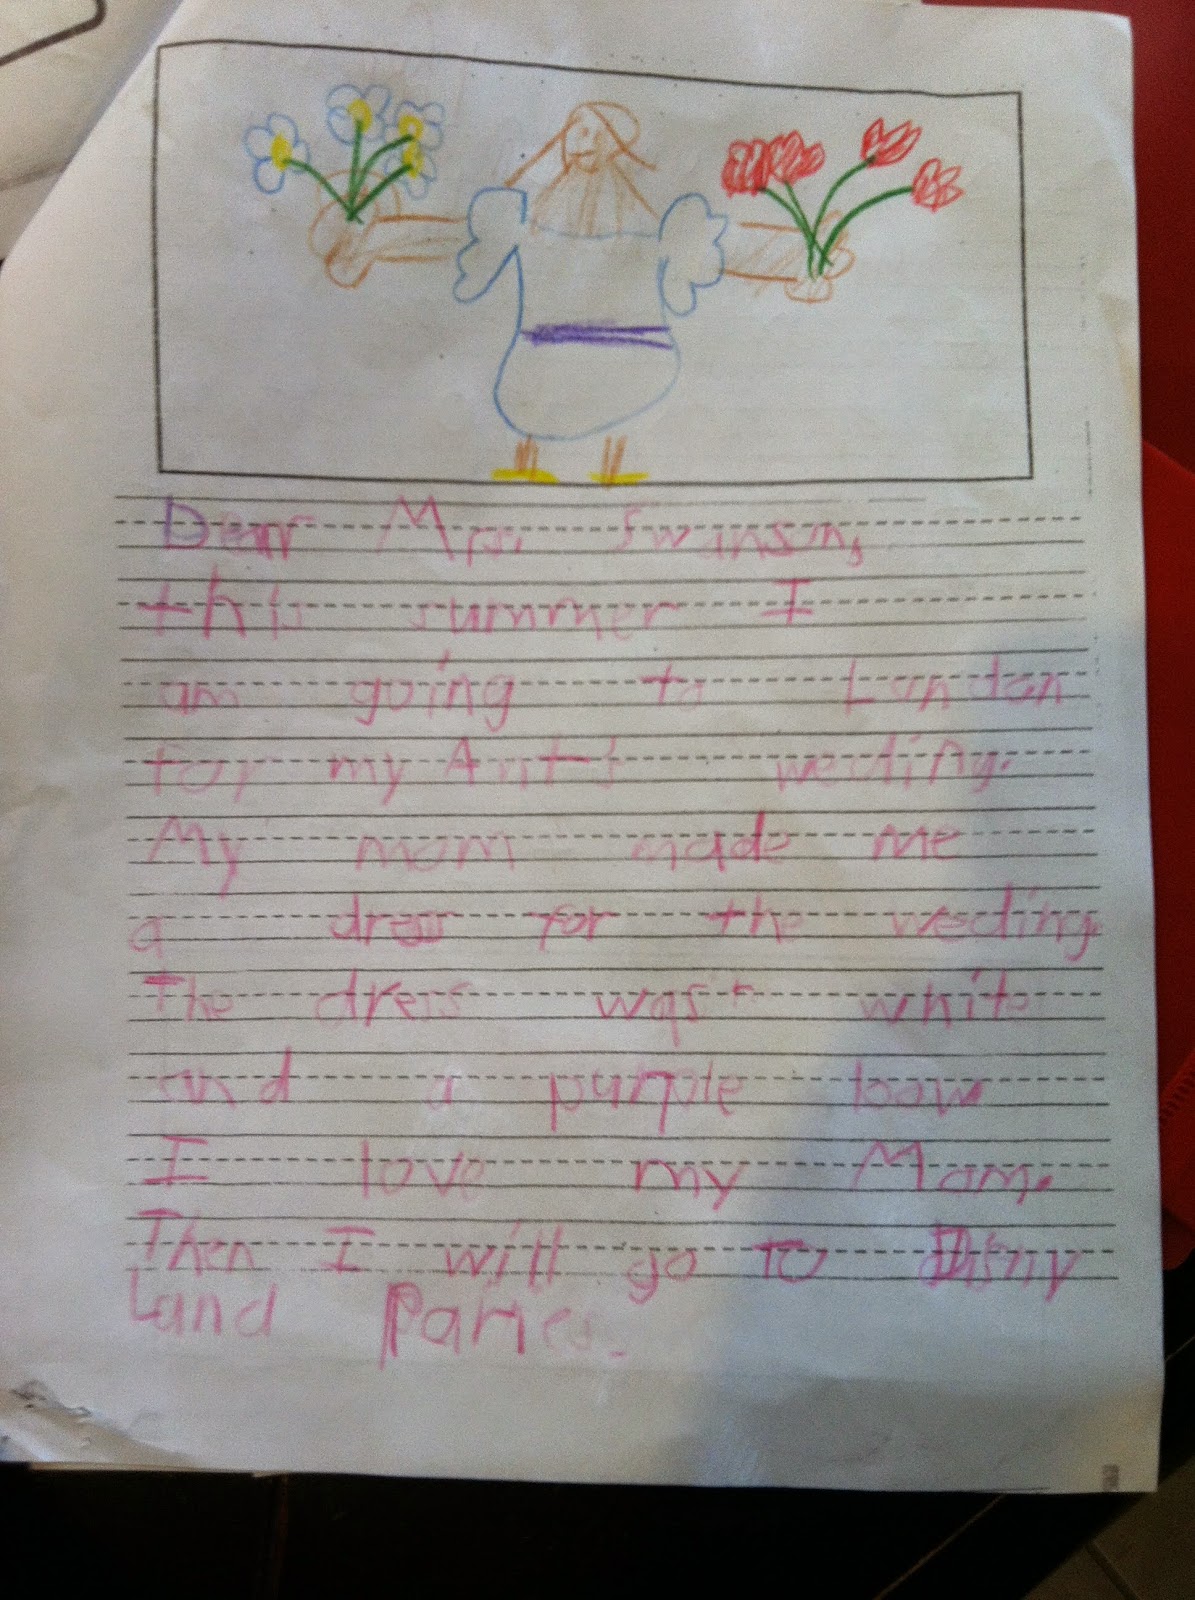 Dear Mrs. Swanson,
this summer I
am going to London
for my Ant's weding.
My mom made me
a dress for the weding.
The dress was white
and a purple bow
I love my Mom.
Then I will go to Disny
Land Paries.